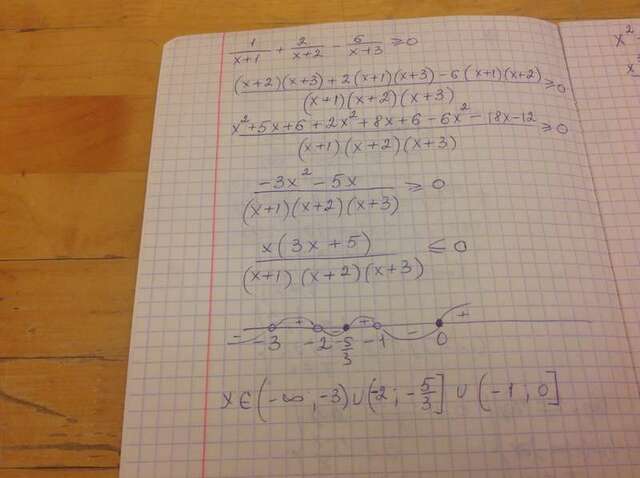 1/(x+1) + 2/(x+2) - 6/(x+3) ≥ 0
((x+2)(x+3) + 2(x+1)(x+3) - 6(x+1)(x+2))/((x+1)(x+2)(x+3)) ≥ 0
(x² + 5x + 6 + 2x² + 8x + 6 - 6x² - 18x - 12)/((x+1)(x+2)(x+3)) ≥ 0
(-3x² - 5x)/((x+1)(x+2)(x+3)) ≥ 0
x(3x+5)/((x+1)(x+2)(x+3)) ≤ 0
- + - + - +
-3 -2 -5/3 -1 0
x ∈ (-∞; -3) ∪ (-2; -5/3] ∪ (-1; 0]
x²
x